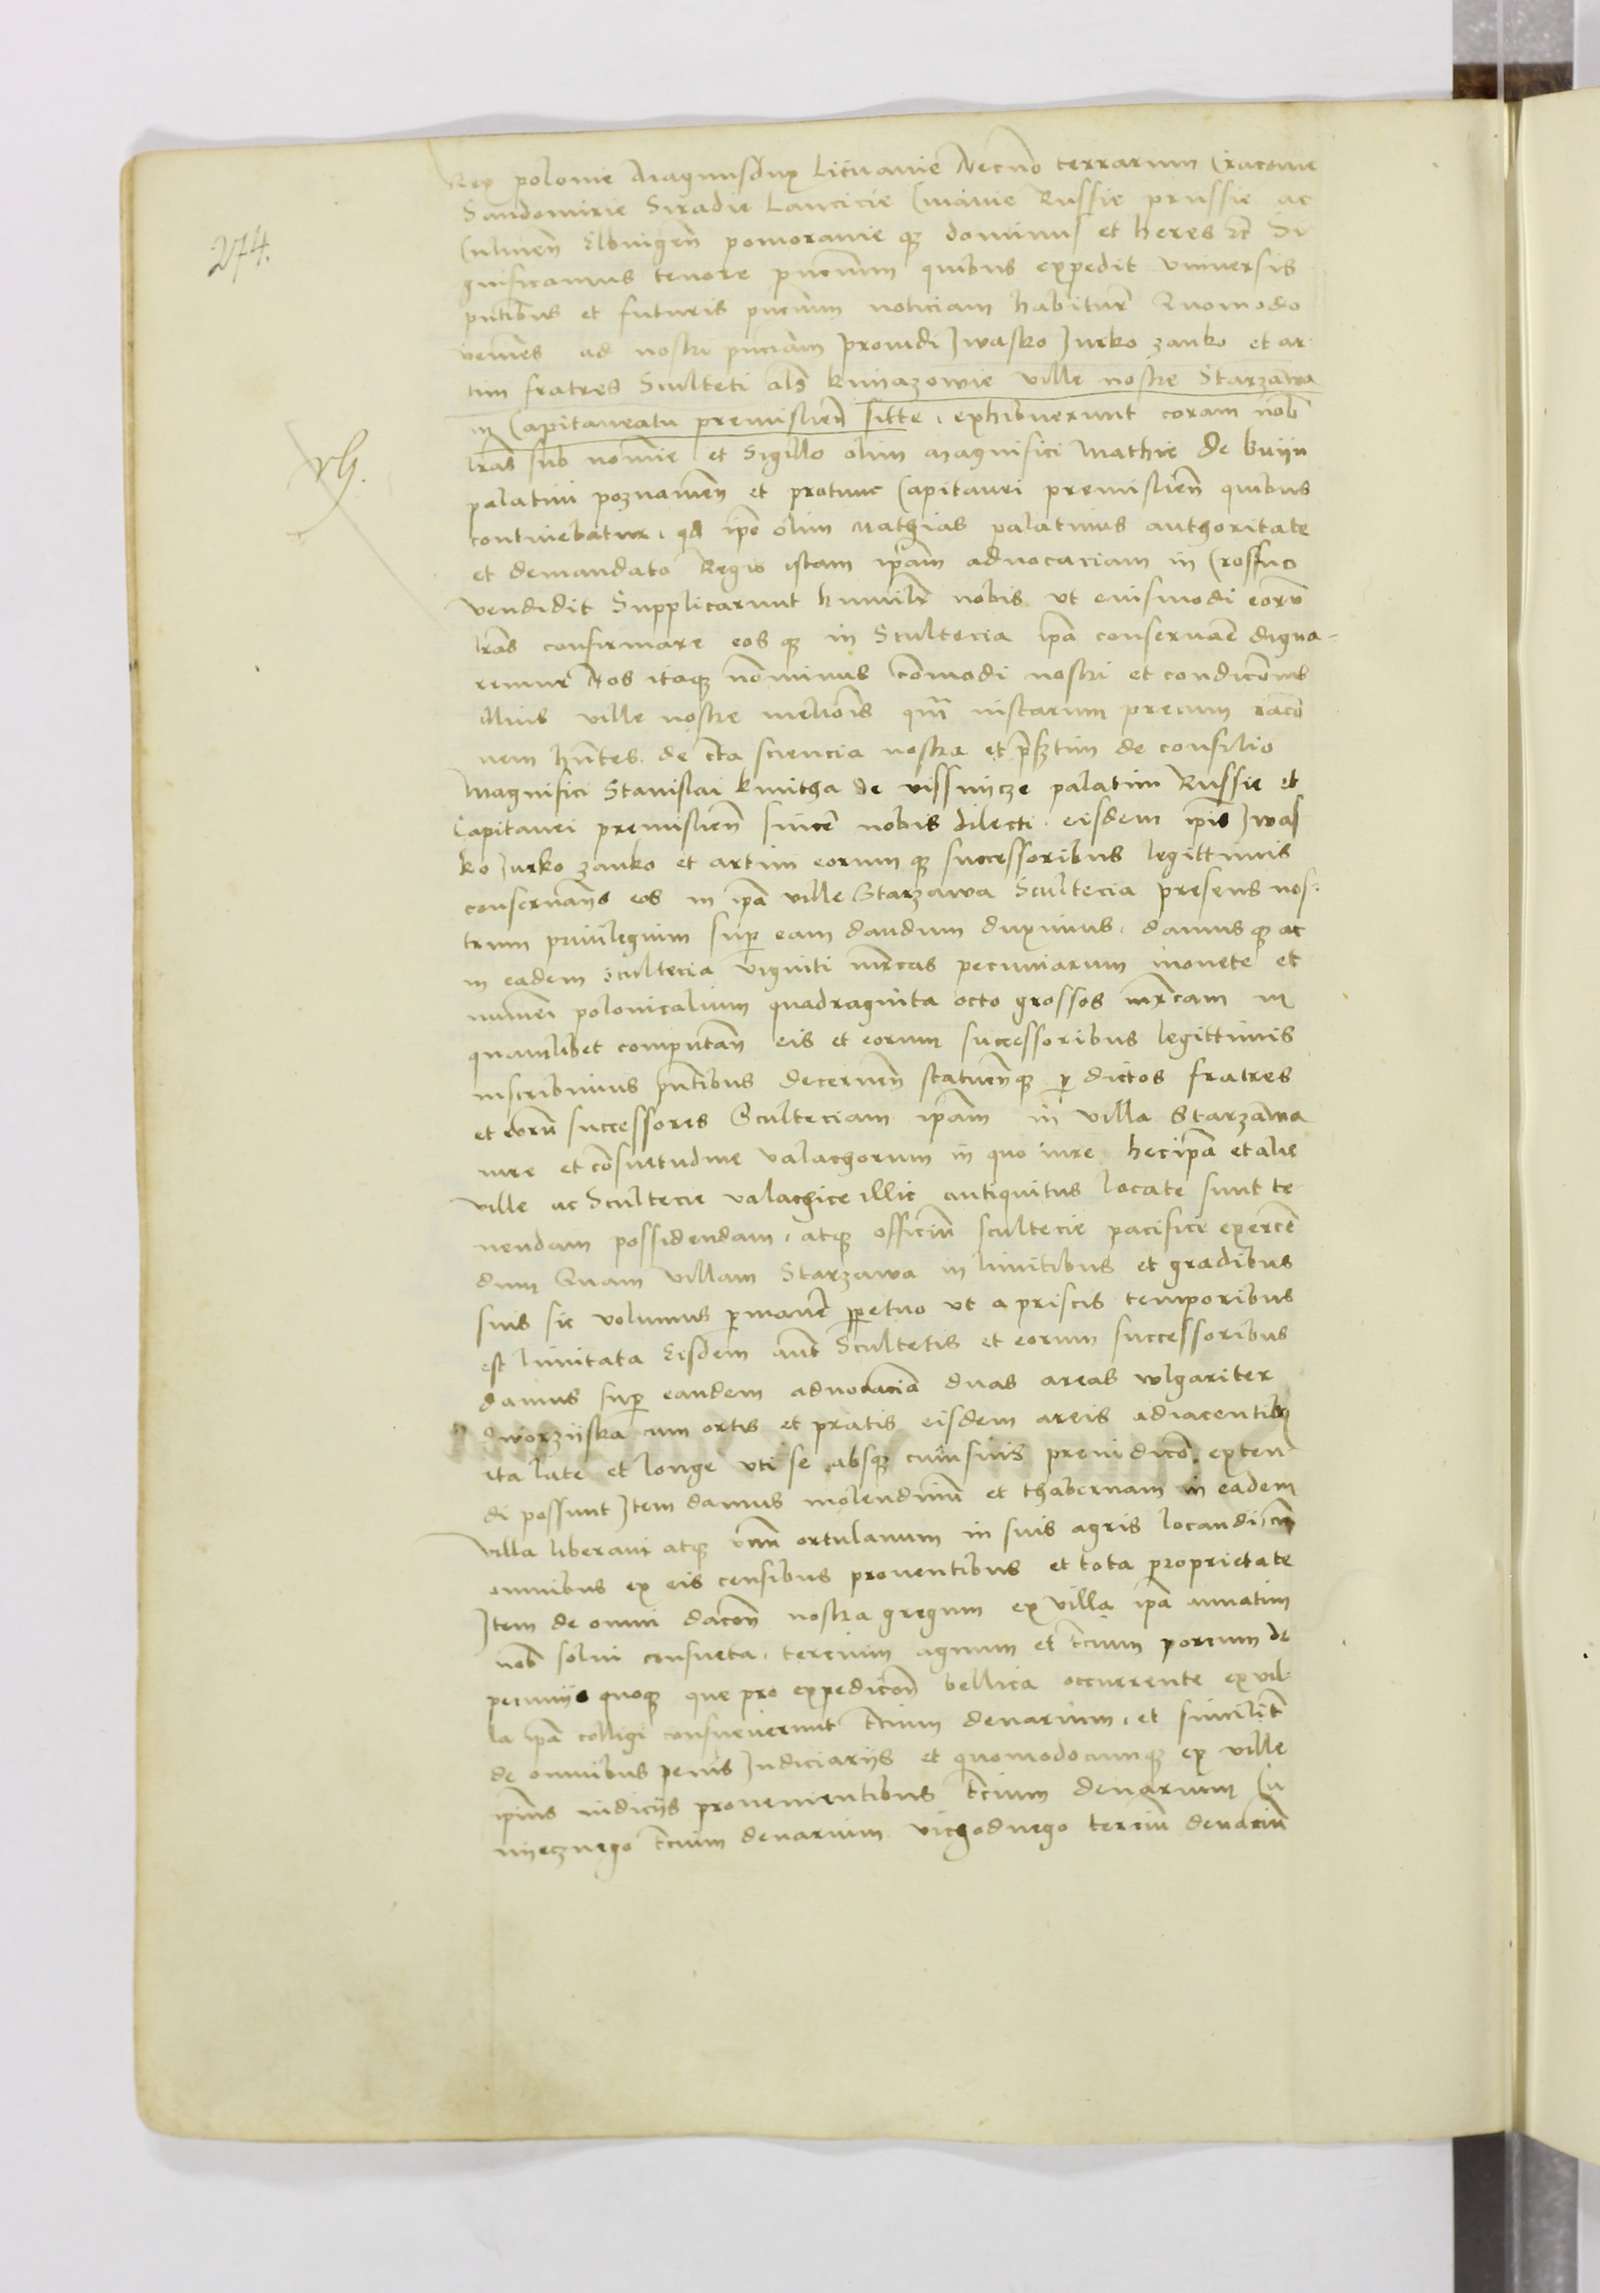 Rex polonie Magnusdux Lituanie Necno terrarum Cracovie
Sandomirie Siradie Lancicie Cuiavie Russie prussie ac
274.
Culmen̄ Elbingen̄ pomoranie qȝ dominus et heres etc̄ Si
gnificamus tenore pn̄cium quibus expedit vniversis
pn̄tibus et futuris pn̄cium noticiam habitur̄ Quomodo
venien̄s ad nostri pn̄ciam providi Jwasko Jurko zanko et ar-
tim fratres Sculteti al̄s kniazowie ville nostre Starzawa
in Capitaneatu premislien̄ sitte, exhibuerunt coram nob̄
vɧ.
l̄ras sub nomīe et Sigillo olim magnifici Mathie de buijn
palatini poznanien̄ et protunc Capitanei premislien̄ quibus
continebatur, qd̄ ip̄e olim Mathias palatinus authoritate
et demandato Regio istam ip̄am advocaciam in Crosſno
vendidit Supplicarunt humilr̄ nobis vt eiusmodi eorū
l̄ras confirmare eos qȝ in Scultecia ip̄a conservar̄e digna-
remur Nos itaqȝ nōminus cōmodi nostri et condicōnis
illius ville nostre melioris qm̄ iustarum precum racō
nem hn̄tes, de c̄ta sciencia nostra et p̄s̄tim de consilio
Magnifici Stanislai kmitha de vissnijcze palatini Russie et
Capitanei premislien̄ sincē nobis dilecti, eisdem ip̄is Jwas
ko Jurko zanko et artim eorum qȝ successoribus legittimis
conservan̄s eos in ip̄a ville Starzawa Scultecia presens nos-
trum privilegium sup̱ eam dandum duximus, damus qȝ ac
in eadem scultecia viginti mr̄cas pecuniarum monete et
numeri polonicalium quadraginta octo grossos mr̄cam in
quamlibet computan̄ eis et eorum successoribus legittimis
inscribimus pn̄tibus decernen̄ statuenqȝ p̱ dictos fratres
et eorū successores Sculteciam ip̄am in villa Starzawa
iure et cōsuetudine valachorum in quo iure hec ip̄a et alie
ville ac Scultecie valachice illic antiquitus locate sunt te-
nendam possidendam, atqȝ officiū scultecie pacifice exercē
dum Quam villam Starzawa in limitibus et gradibus
suis sic volumus p̱maner̄e pp̱etuo vt a priscis temporibus
est limitata Eisdem aut̄ Scultetis et eorum successoribus
damus sup̱ eandem advocaciā duas areas vlgariter
dworzijska cum ortis et pratis eisdem areis adiacentibȝ
ita late et longe vti se absqȝ cuiusuis preiudicō, exten
di possunt Item damus molendinū et thabernam in eadem
villa liberam atqȝ vnū ortulanum in suis agris locandi cū
omnibus ex eis censibus proventibus et tota proprietate
Item de omni dacōn̄ nostra gregum ex villa ip̄a annatim
nob̄ solui consueta, tercium agnum et t̄cium porcum de
pecunijs quoqȝ que pro expedicōn̄ bellica occurrente ex vil-
la ip̄a colligi consueverunt t̄cium denarium, et similit̄
de omnibus penis Judiciarijs et quomodocumqȝ ex ville
ip̄ius iudicijs provenientibus t̄cium denarium Cu
nijcznego t̄cium denarium vichodnego terciū denariū